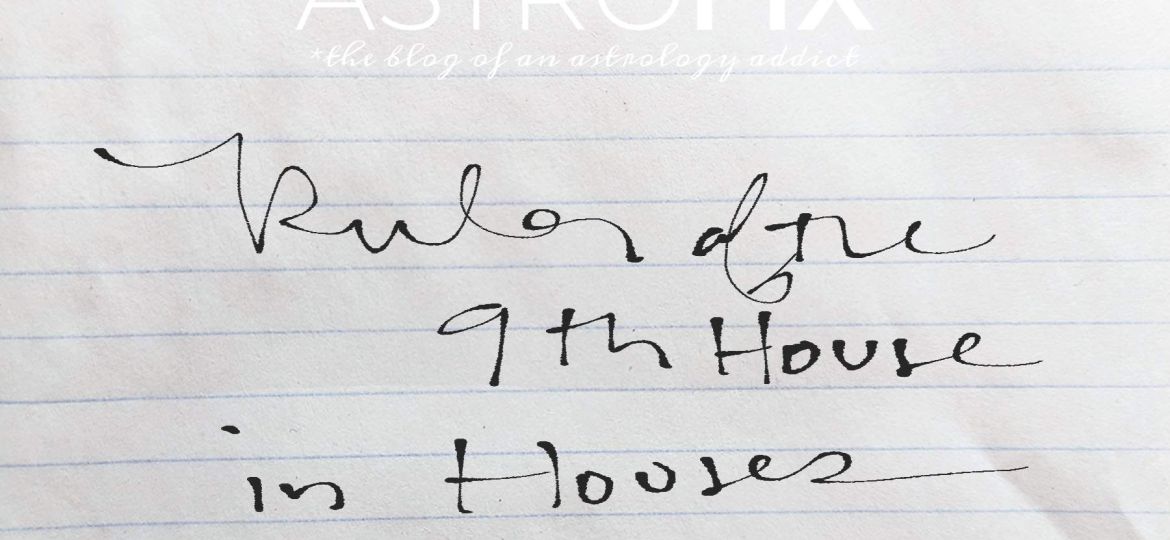 ASTROFIX
*the blog of an astrology addict
Ruler of the
9th House
in Houses